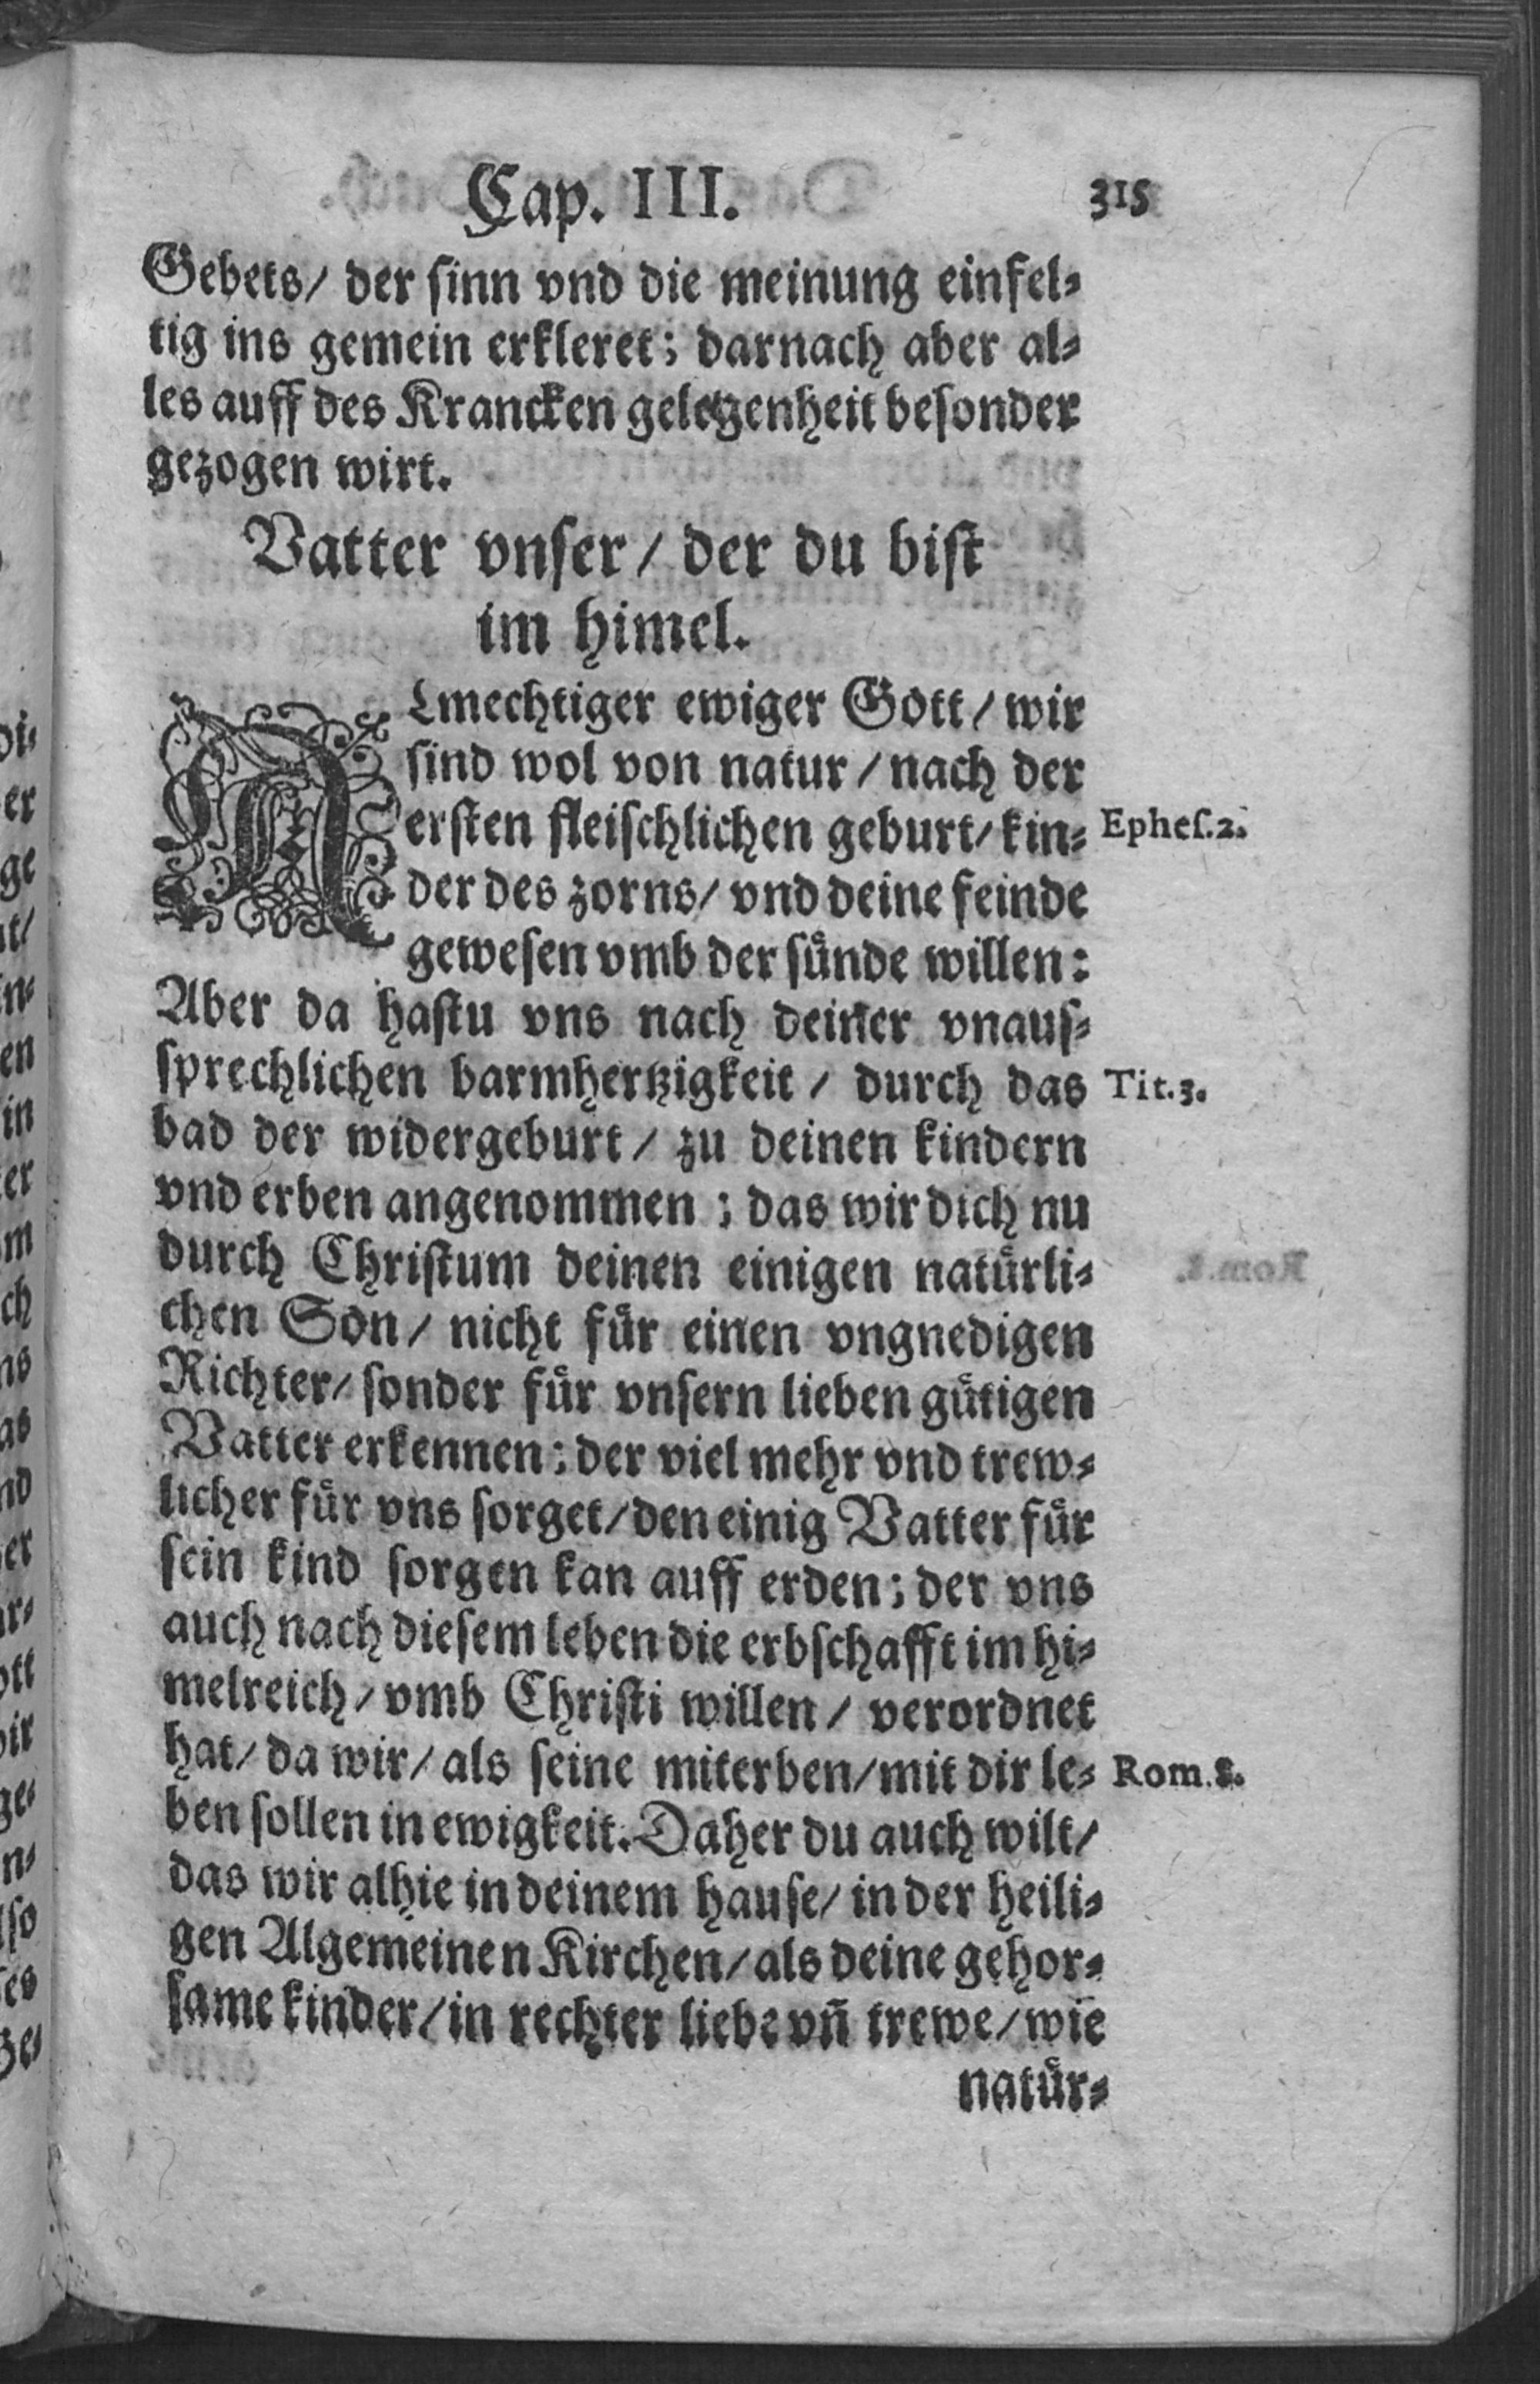 Cap. III. 315
Gebets/ der sinn vnd die meinung einfel⸗
tig ins gemein erkleret; darnach aber al⸗
les auff des Krancken gelegenheit besonder
gezogen wirt.
Vatter vnser/ der du bist
im himel.
ALmechtiger ewiger Gott/ wir
sind wol von natur/ nach der
ersten fleischlichen geburt/ kin⸗ Ephes.2.
der des zorns/ vnd deine feinde
gewesen vmb der sünde willen:
Aber da hastu vns nach deiner vnaus⸗
sprechlichen barmhertzigkeit/ durch das Tit.3.
bad der widergeburt/ zu deinen kindern
vnd erben angenommen; das wir dich nu
durch Christum deinen einigen natürli⸗
chen Son/ nicht für einen vngnedigen
Richter/ sonder für vnsern lieben gütigen
Vatter erkennen: der viel mehr vnd trew⸗
licher für vns sorget/ den einig Vatter für
sein kind sorgen kan auff erden; der vns
auch nach diesem leben die erbschafft im hi⸗
melreich/ vmb Christi willen/ verordnet
hat/ da wir/ als seine miterben/ mit dir le⸗ Rom.8.
ben sollen in ewigkeit. Daher du auch wilt/
das wir alhie in deinem hause/ in der heili⸗
gen Algemeinen Kirchen/ als deine gehor⸗
same kinder/ in rechter liebe vn̄ trewe/ wie
natür⸗